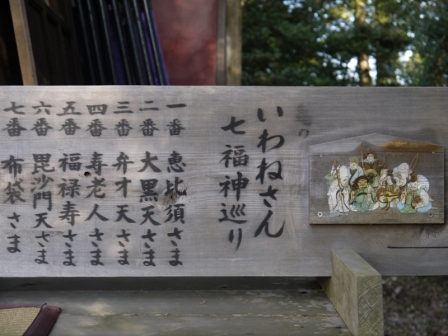 いわねさん
七福神巡り
一番 恵比須さま
二番 大黒天さま
三番 弁才天さま
四番 寿老人さま
五番 福禄寿さま
六番 毘沙門天さま
七番 布袋さま